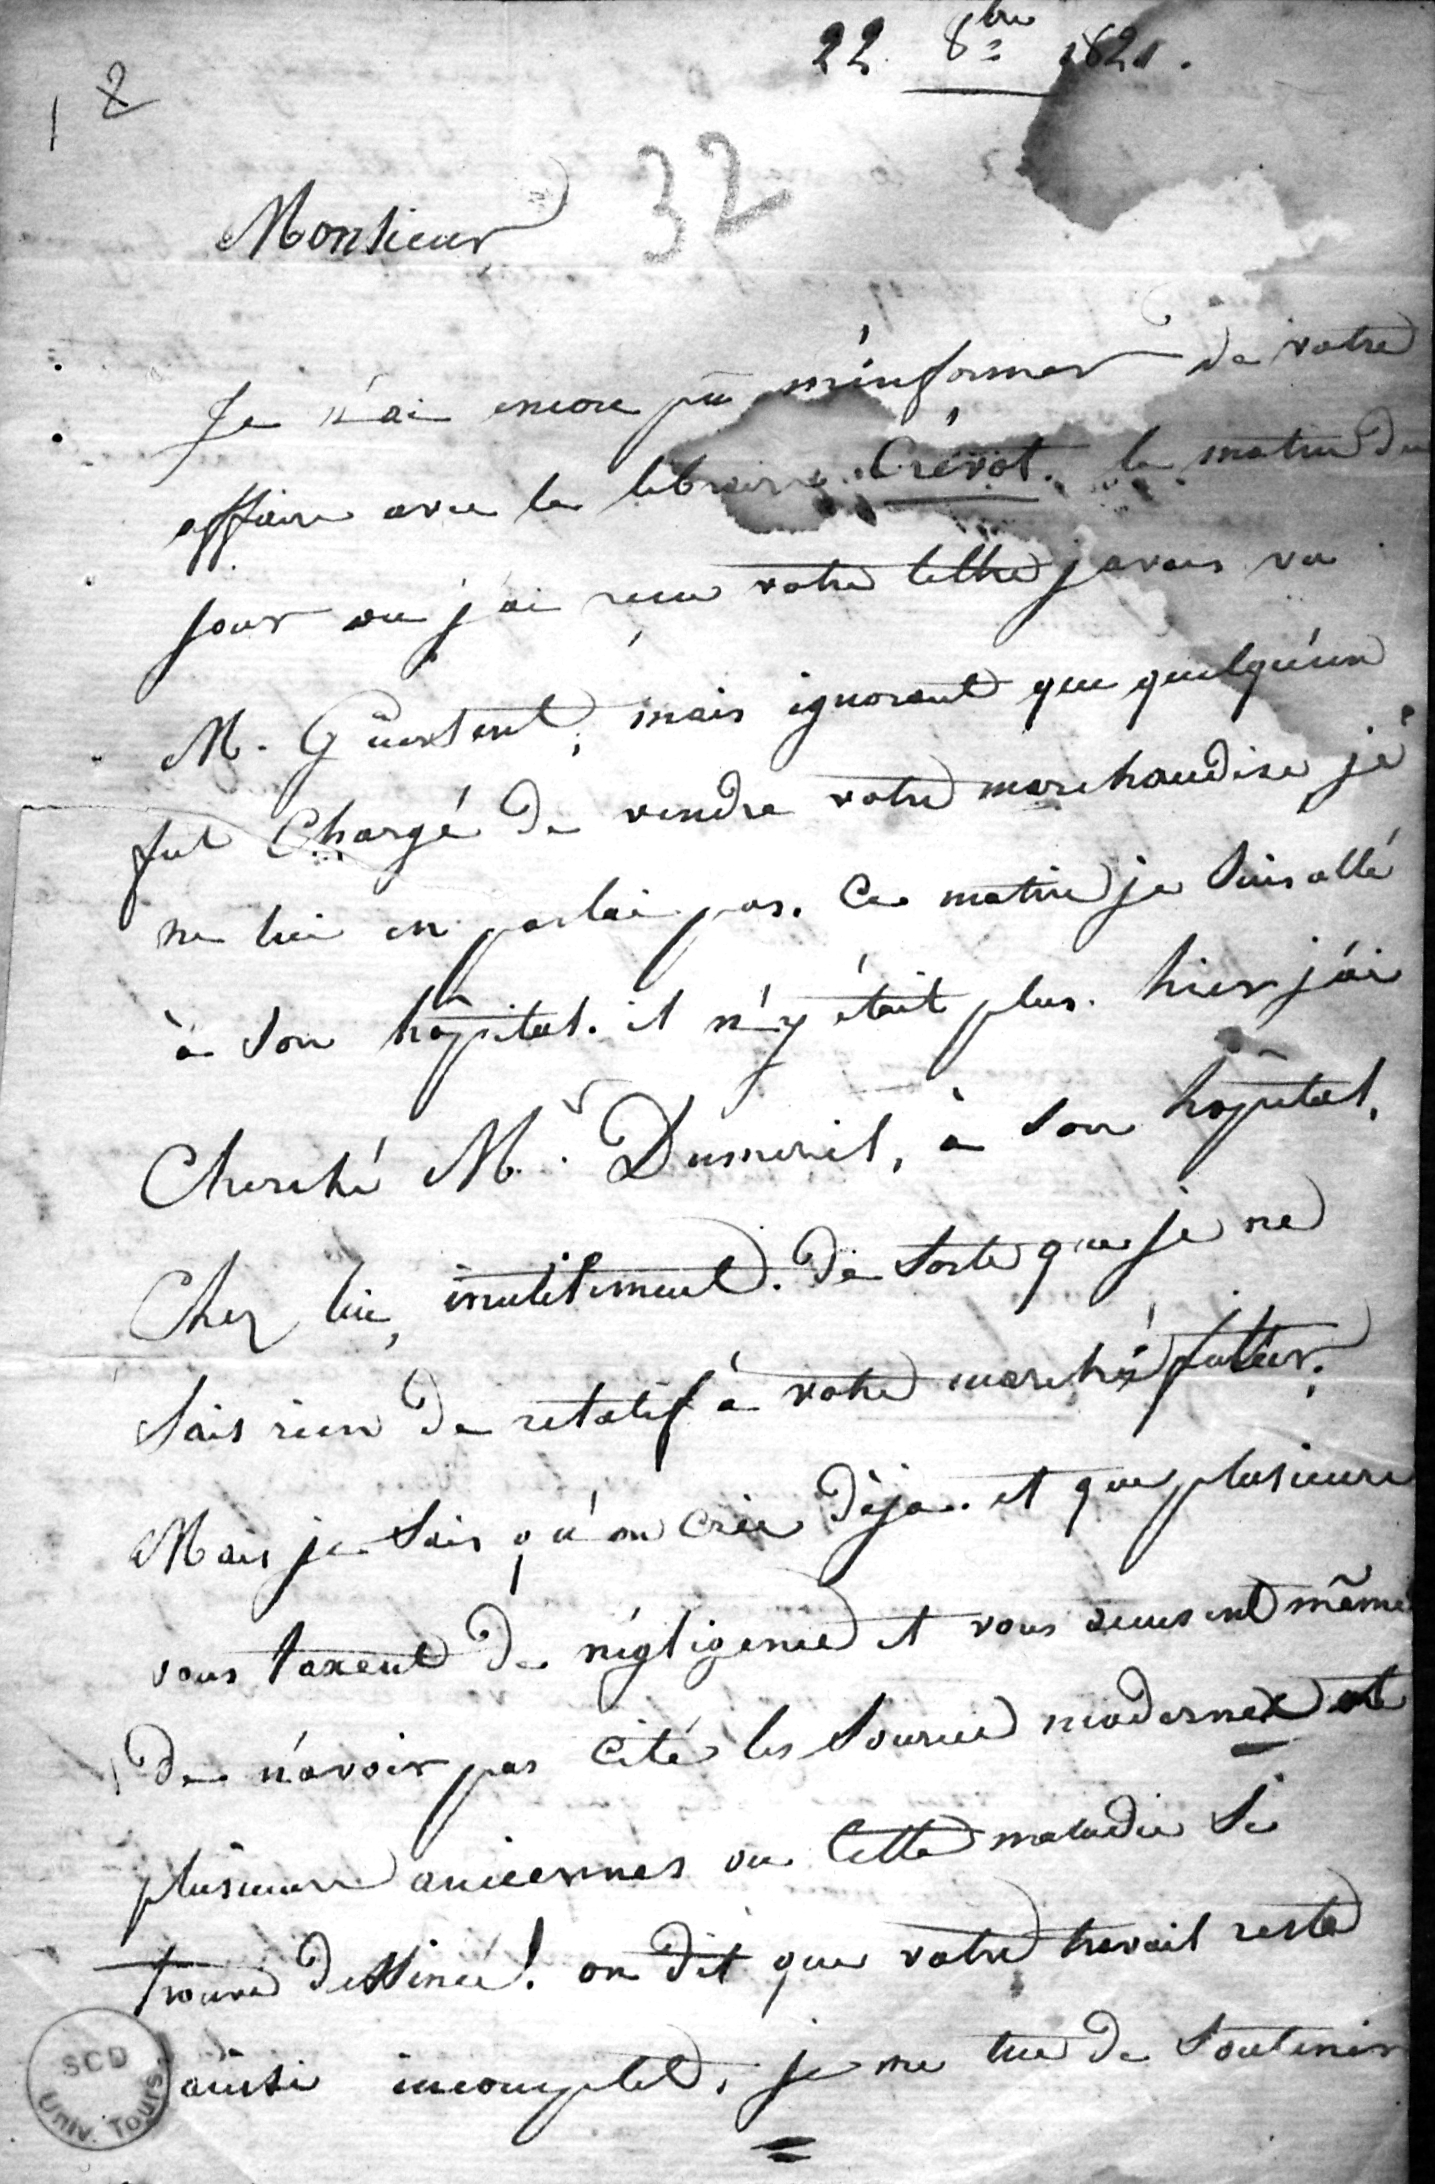 22 8bre 1821.
1 2
32
Monsieur
Je n'ai encore pu m'informer de votre
affaire avec le libraire Crévot. le matin du
jour ou j'ai reçu votre lettre j'avais vu
M. Guersent, mais ignorant que quelqu'un
fut Chargé de vendre votre marchandise je
ne lui en parlai pas. Ce matin je suis allé
à son hôpital. il n'y était plus. hier j'ai
Cherché Mr. Dumeril, à son hôpital,
Chez lui, inutilement. de sorte que je ne
sais rien de relatif à votre marché futur;
Mais je sais qu'on crie déja. et que plusieurs
vous taxent de négligence et vous accusent même
de n'avoir pas cité les sources modernes et
plusieurs anciennes ou Cette maladie se
trouve dessinée! on dit que votre travail reste
ainsi incomplet, je me tue de soutenir
SCD
Univ. Tours.